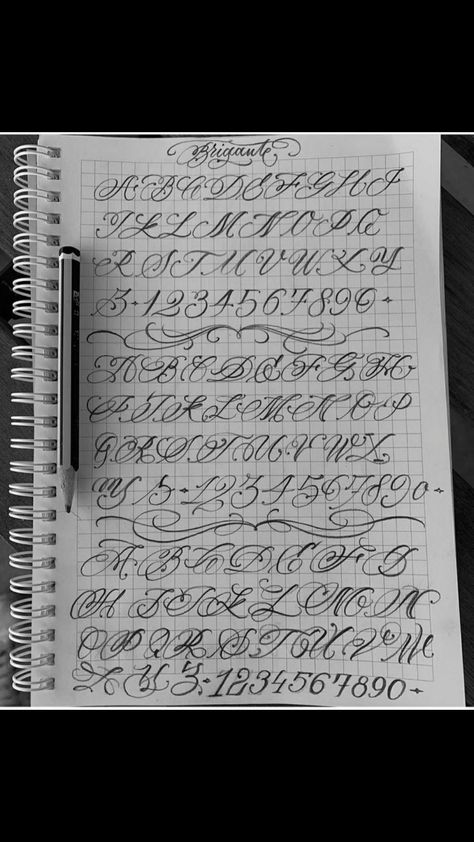 Brigante
A B C D E F G H I
J K L M N O P Q
R S T U V W X Y
Z • 1 2 3 4 5 6 7 8 9 0 •
A B C D E F G H
I J K L M N O P
Q R S T U V W X
Y Z • 1 2 3 4 5 6 7 8 9 0 •
A B C D E F G
H I J K L M N
O P Q R S T U V W
X Y Z • 1 2 3 4 5 6 7 8 9 0 •